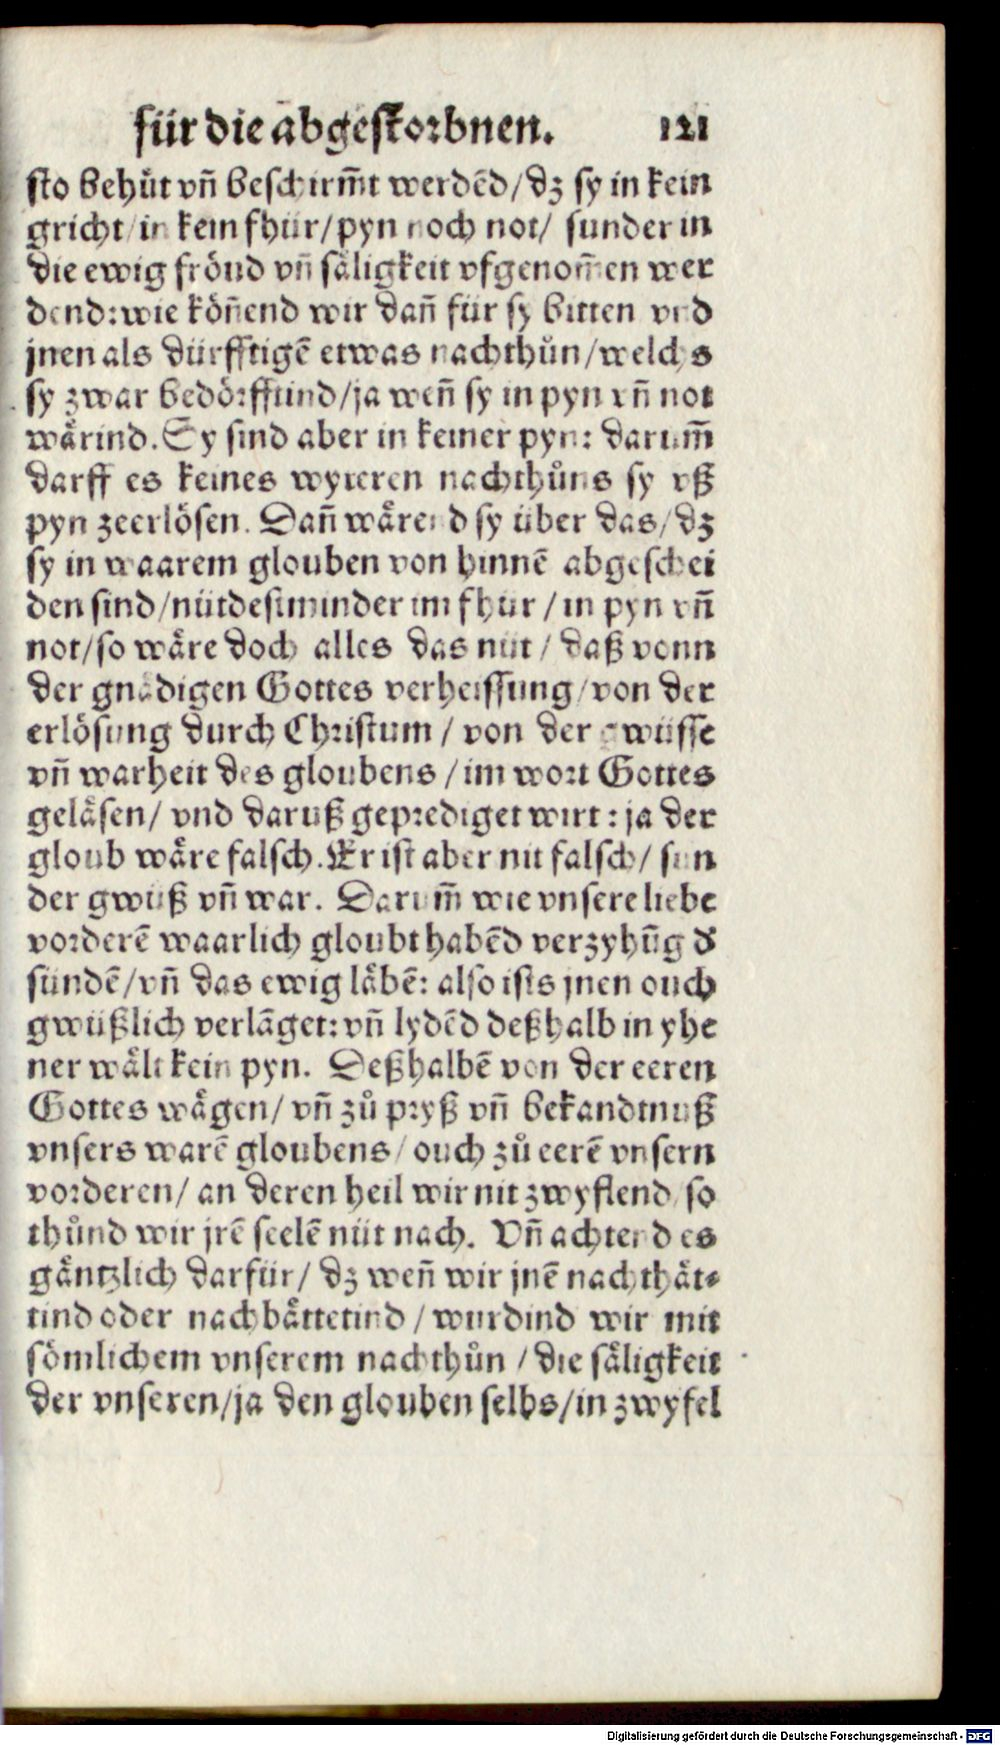 für die abgestorbnen. 121
sto behuͤt vñ beschirm̃t werdẽd/dz sy in kein
gricht/in kein fhür/pyn noch not/ sunder in
die ewig froͤud vñ saͤligkeit vfgenom̃en wer
dend:wie koͤñend wir dañ für sy bitten vnd
jnen als dürfftigẽ etwas nachthůn/welchs
sy zwar bedoͤrfftind/ja weñ sy in pyn vñ not
waͤrind. Sy sind aber in keiner pyn: darum̃
darff es keines wyteren nachthůns sy vß
pyn zeerloͤsen. Dañ waͤrend sy über das/dz
sy in waarem glouben von hinnẽ abgeschei
den sind/nütdestminder im fhür/in pyn vñ
not/so waͤre doch alles das nüt/ daß vonn
der gnaͤdigen Gottes verheissung/von der
erloͤsung durch Christum/ von der gwüsse
vñ warheit des gloubens/im wort Gottes
gelaͤsen/ vnd daruß geprediget wirt: ja der
gloub waͤre falsch. Er ist aber nit falsch/ sun
der gwüß vñ war. Darum̃ wie vnsere liebe
vorderẽ waarlich gloubt habẽd verzyhũg d̕
sündẽ/vñ das ewig laͤbẽ: also ists jnen ouch
gwüßlich verlãget: vñ lydẽd deßhalb in yhe
ner waͤlt kein pyn. Deßhalbẽ von der eeren
Gottes waͤgen/ vñ zů pryß vñ bekandtnuß
vnsers warẽ gloubens/ouch zů eerẽ vnsern
vorderen/ an deren heil wir nit zwyflend/so
thůnd wir jrẽ seelẽ nüt nach. Vñ achtend es
gaͤntzlich darfür/ dz weñ wir jnẽ nachthaͤt⸗
tind oder nachbaͤttetind/wurdind wir mit
soͤmlichem vnserem nachthůn/die saͤligkeit
der vnseren/ja den glouben selbs/in zwyfel
Digitalisierung gefördert durch die Deutsche Forschungsgemeinschaft - DFG